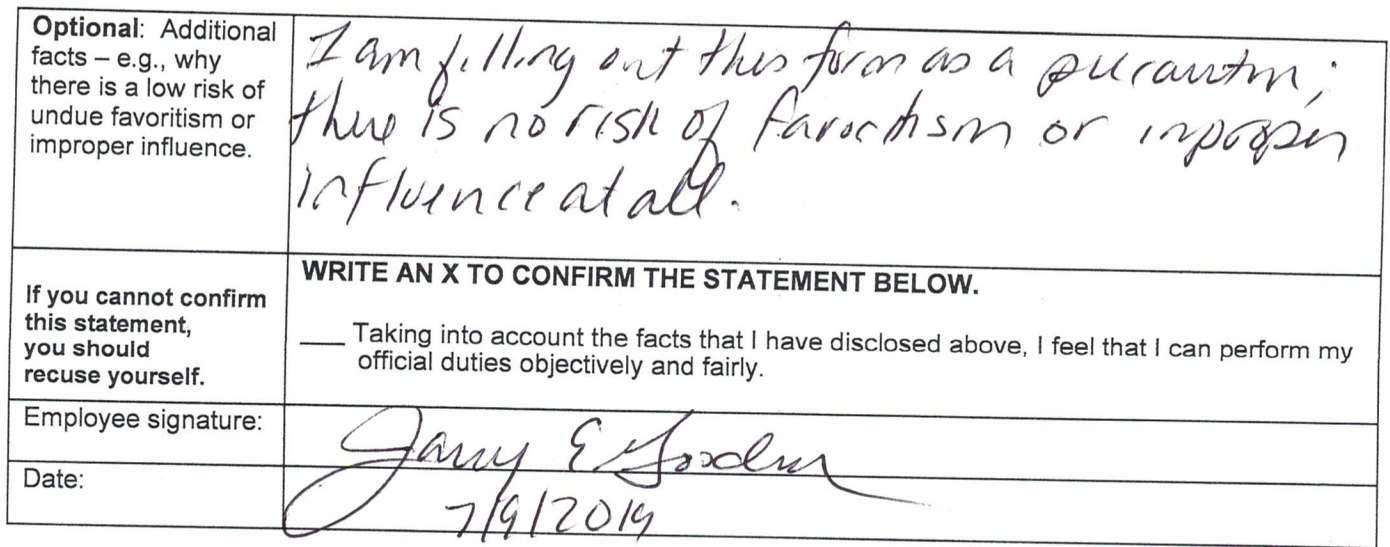 Optional: Additional
facts – e.g., why
there is a low risk of
undue favoritism or
improper influence.
I am filling out this form as a precaution;
there is no risk of favoritism or improper
influence at all.
If you cannot confirm
this statement,
you should
recuse yourself.
WRITE AN X TO CONFIRM THE STATEMENT BELOW.
___ Taking into account the facts that I have disclosed above, I feel that I can perform my
official duties objectively and fairly.
Employee signature:
E
Date:
7/9/2019